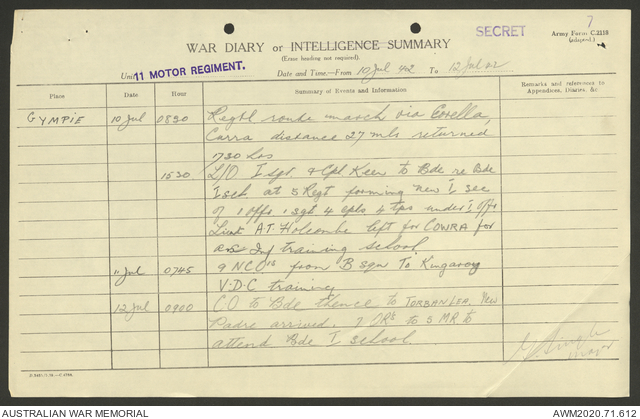 7
SECRET
Army Form C.2118
(adapted.)
WAR DIARY or INTELLIGENCE SUMMARY
(Erase heading not required).
Unit 11 MOTOR REGIMENT.
Date and Time—From 10 Jul 42 To 12 Jul 42
Place Date Hour Summary of Events and Information Remarks and references to Appendices, Diaries, &c
GYMPIE 10 Jul 0830 Regtl route march via Corella,
Curra distance 27 mls returned
1730 hrs
1530 L/O I sgt & Cpl Keer to Bde re Bde
I sch. at 5 Regt forming new I sec
of 1 offr 1 sgt 4 cpls 4 tps under I offr
Lieut A.T. Holcombe left for COWRA for
Inf training school
11 Jul 0745 9 NCOs from B sqn To Kingaroy
V.D.C training
12 Jul 0900 CO to Bde thence to TORBANLEA. New
Padre arrived. 7 ORs to 5 MR to
attend Bde I school.
Major
AUSTRALIAN WAR MEMORIAL
AWM2020.71.612